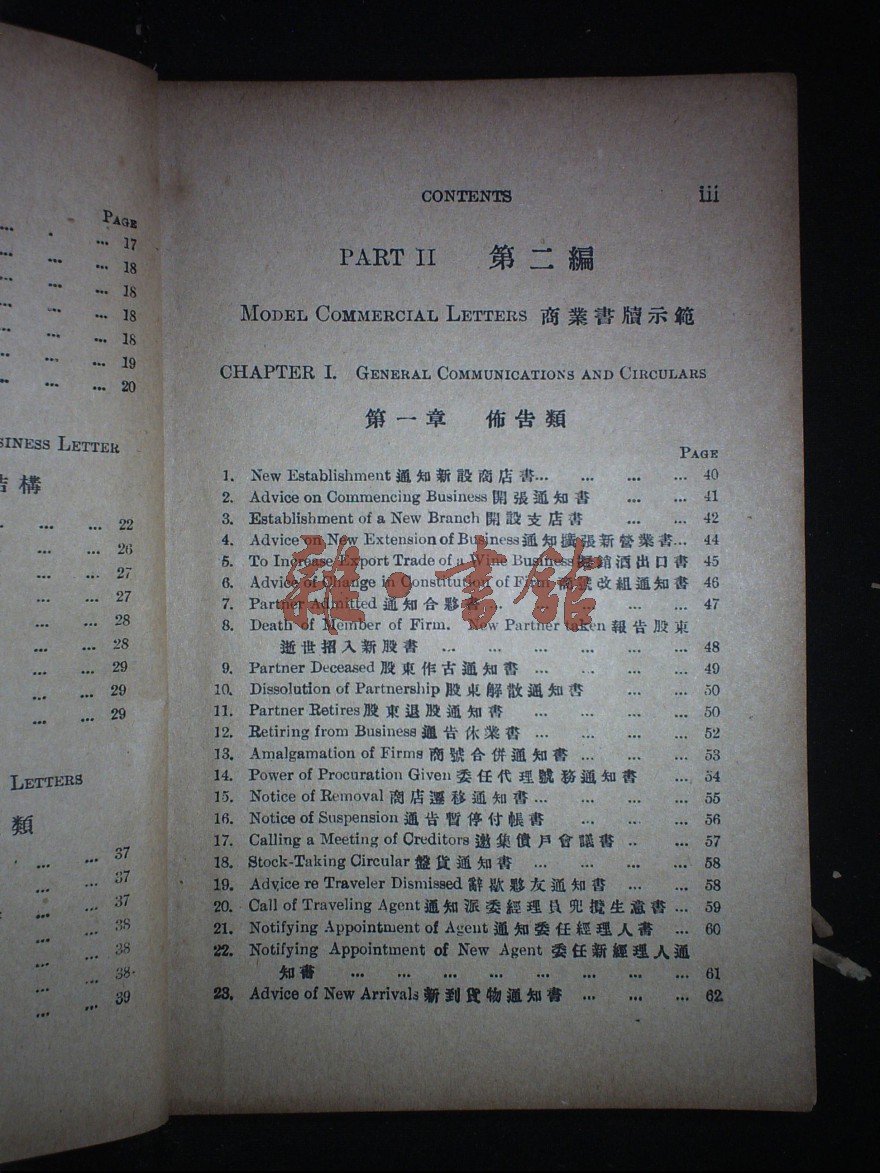 PAGE
... . ... 17
... ... ... 18
... ... ... 18
... ... ... 18
... ... ... 18
... ... ... 19
... ... ... 20
SINESS LETTER
結構
... ... ... 22
... ... 26
... ... ... 27
... ... 27
... ... ... 28
... ... ... 28
... ... ... 29
... ... ... 29
... ... ... 29
LETTERS
類
... ... 37
... ... 37
... ... 37
... ... 38
... ... 38
... ... 38
... ... 39
CONTENTS iii
PART II 第二編
MODEL COMMERCIAL LETTERS 商業書牘示範
CHAPTER I. GENERAL COMMUNICATIONS AND CIRCULARS
第一章 佈告類
PAGE
1. New Establishment 通知新設商店書... ... ... ... 40
2. Advice on Commencing Business 開張通知書 ... ... 41
3. Establishment of a New Branch 開設支店書 ... ... 42
4. Advice on New Extension of Business 通知擴張新營業書... 44
5. To Increase Export Trade of a Wine Business 銷酒出口書 45
6. Advice of Change in Constitution of Firm 商號改組通知書 46
7. Partner Admitted 通知合夥書... ... ... ... ... 47
8. Death of Member of Firm. New Partner taken 報告股東
逝世招入新股書 ... ... ... ... ... ... 48
9. Partner Deceased 股東作古通知書 ... ... ... ... 49
10. Dissolution of Partnership 股東解散通知書 ... ... 50
11. Partner Retires 股東退股通知書 ... ... ... ... 50
12. Retiring from Business 通告休業書 ... ... ... ... 52
13. Amalgamation of Firms 商號合併通知書 ... ... ... 53
14. Power of Procuration Given 委任代理號務通知書 ... 54
15. Notice of Removal 商店遷移通知書... ... ... ... 55
16. Notice of Suspension 通告暫停付帳書 ... ... ... 56
17. Calling a Meeting of Creditors 邀集債戶會議書 .. ... 57
18. Stock-Taking Circular 盤貨通知書 ... ... ... ... 58
19. Advice re Traveler Dismissed 辭歇夥友通知書 ... ... 58
20. Call of Traveling Agent 通知派委經理員兜攬生意書 ... 59
21. Notifying Appointment of Agent 通知委任經理人書 ... 60
22. Notifying Appointment of New Agent 委任新經理人通
知書 ... ... ... ... ... ... ... ... 61
23. Advice of New Arrivals 新到貨物通知書 ... ... ... 62
雜·書館